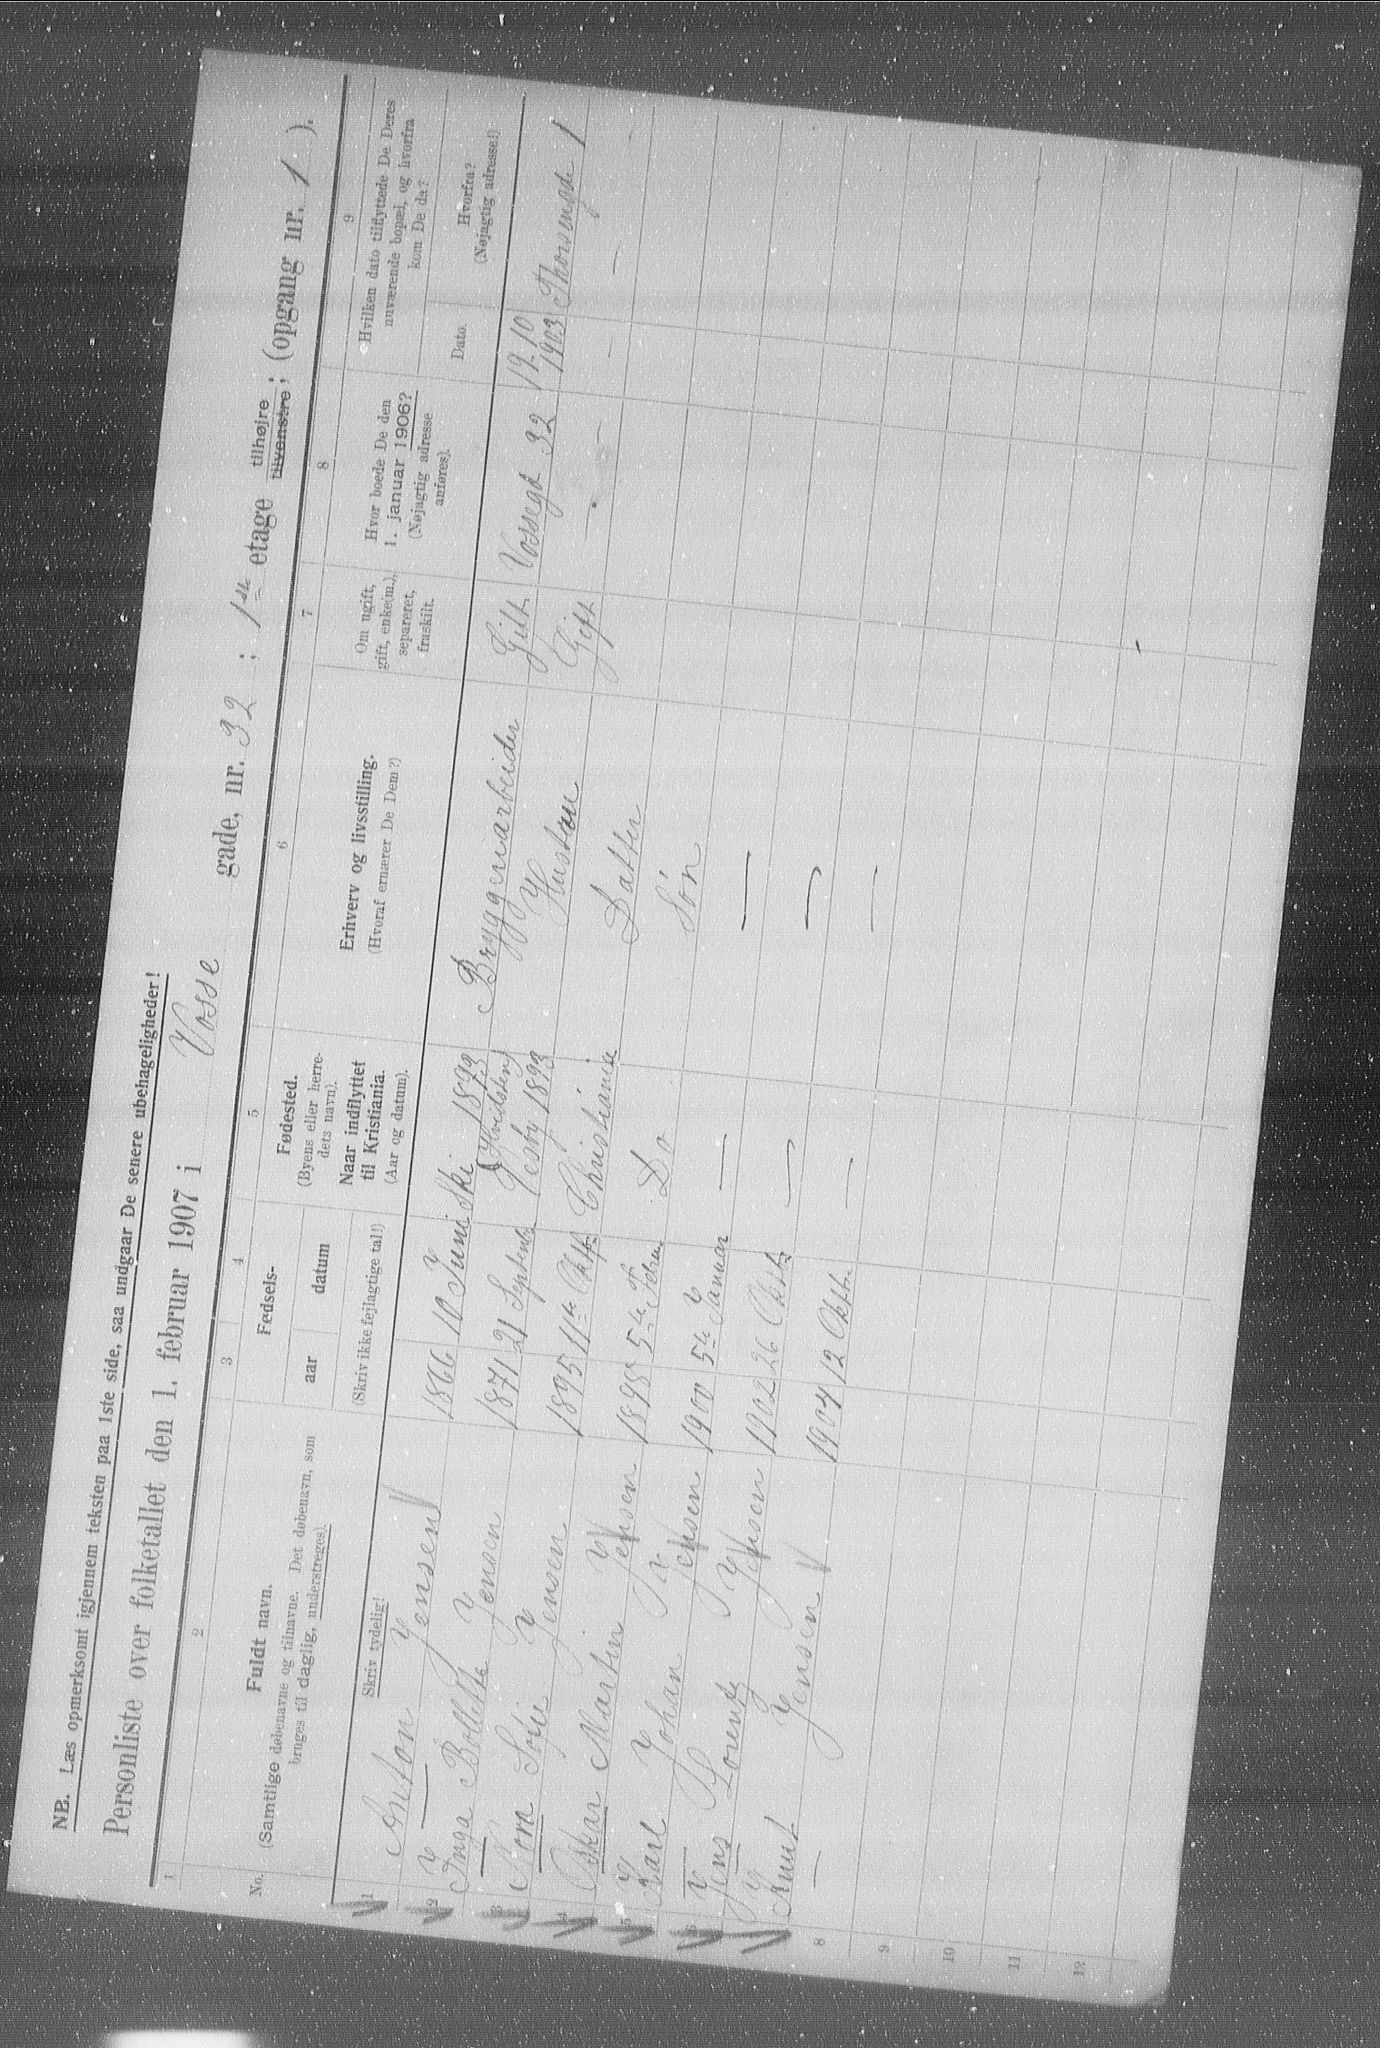 NB. Læs opmerksomt igjennem teksten paa 1ste side, saa undgaar De senere ubehageligheder!
Personliste over folketallet den 1. februar 1907 i Vosse gade, nr. 32 ; 1ste etage tilhøjre tilvenstre; (opgang nr. 1 ).
1 2 3 4 5 6 7 8 9
No.
Fuldt navn.
(Samtlige døbenavne og tilnavne. Det døbenavn, som
bruges til daglig, understreges).
Skriv tydelig!
Fødsels-
aar datum
(Skriv ikke fejlagtige tal!)
Fødested.
(Byens eller herre-
dets navn).
Naar indflyttet
til Kristiania.
(Aar og datum).
Erhverv og livsstilling.
(Hvoraf ernærer De Dem?)
Om ugift,
gift, enke(m.),
separeret,
fraskilt.
Hvor boede De den
1. januar 1906?
(Nøjagtig adresse
anføres).
Hvilken dato tilflyttede De Deres
nuværende bopæl, og hvorfra
kom De da?
Dato.
Hvorfra?
(Nøjagtig adresse!)
1 Anton Jensen 1866 10 Juni Ski 1893 Bryggeriarbeider Gift Vossegd 32 19 10 1903 Thorsengde 1
2 Inga Bollette Jensen 1871 21 Septembr (Hvidsten) Vesby 1893 Hustru Gift — — —
3 Nora Sofie Jensen 1895 11te Oktb Christiania Datter
4 Oskar Martin Jensen 1898 5te Febru. Do Sön
5 Karl Johan Jensen 1900 5te Januar — —
6 Jens Lorentz Jensen 1902 26 Oktb. — —
Knut Jensen 1904 12 Oktbr. — —
8
9
10
11
12